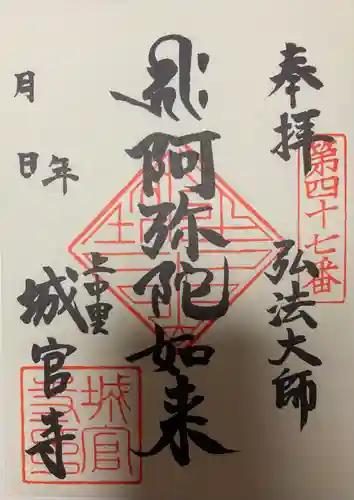 奉拝
第四十七番
弘法大師
阿弥陀如来
上中里
城官寺
年
月
日
城官寺